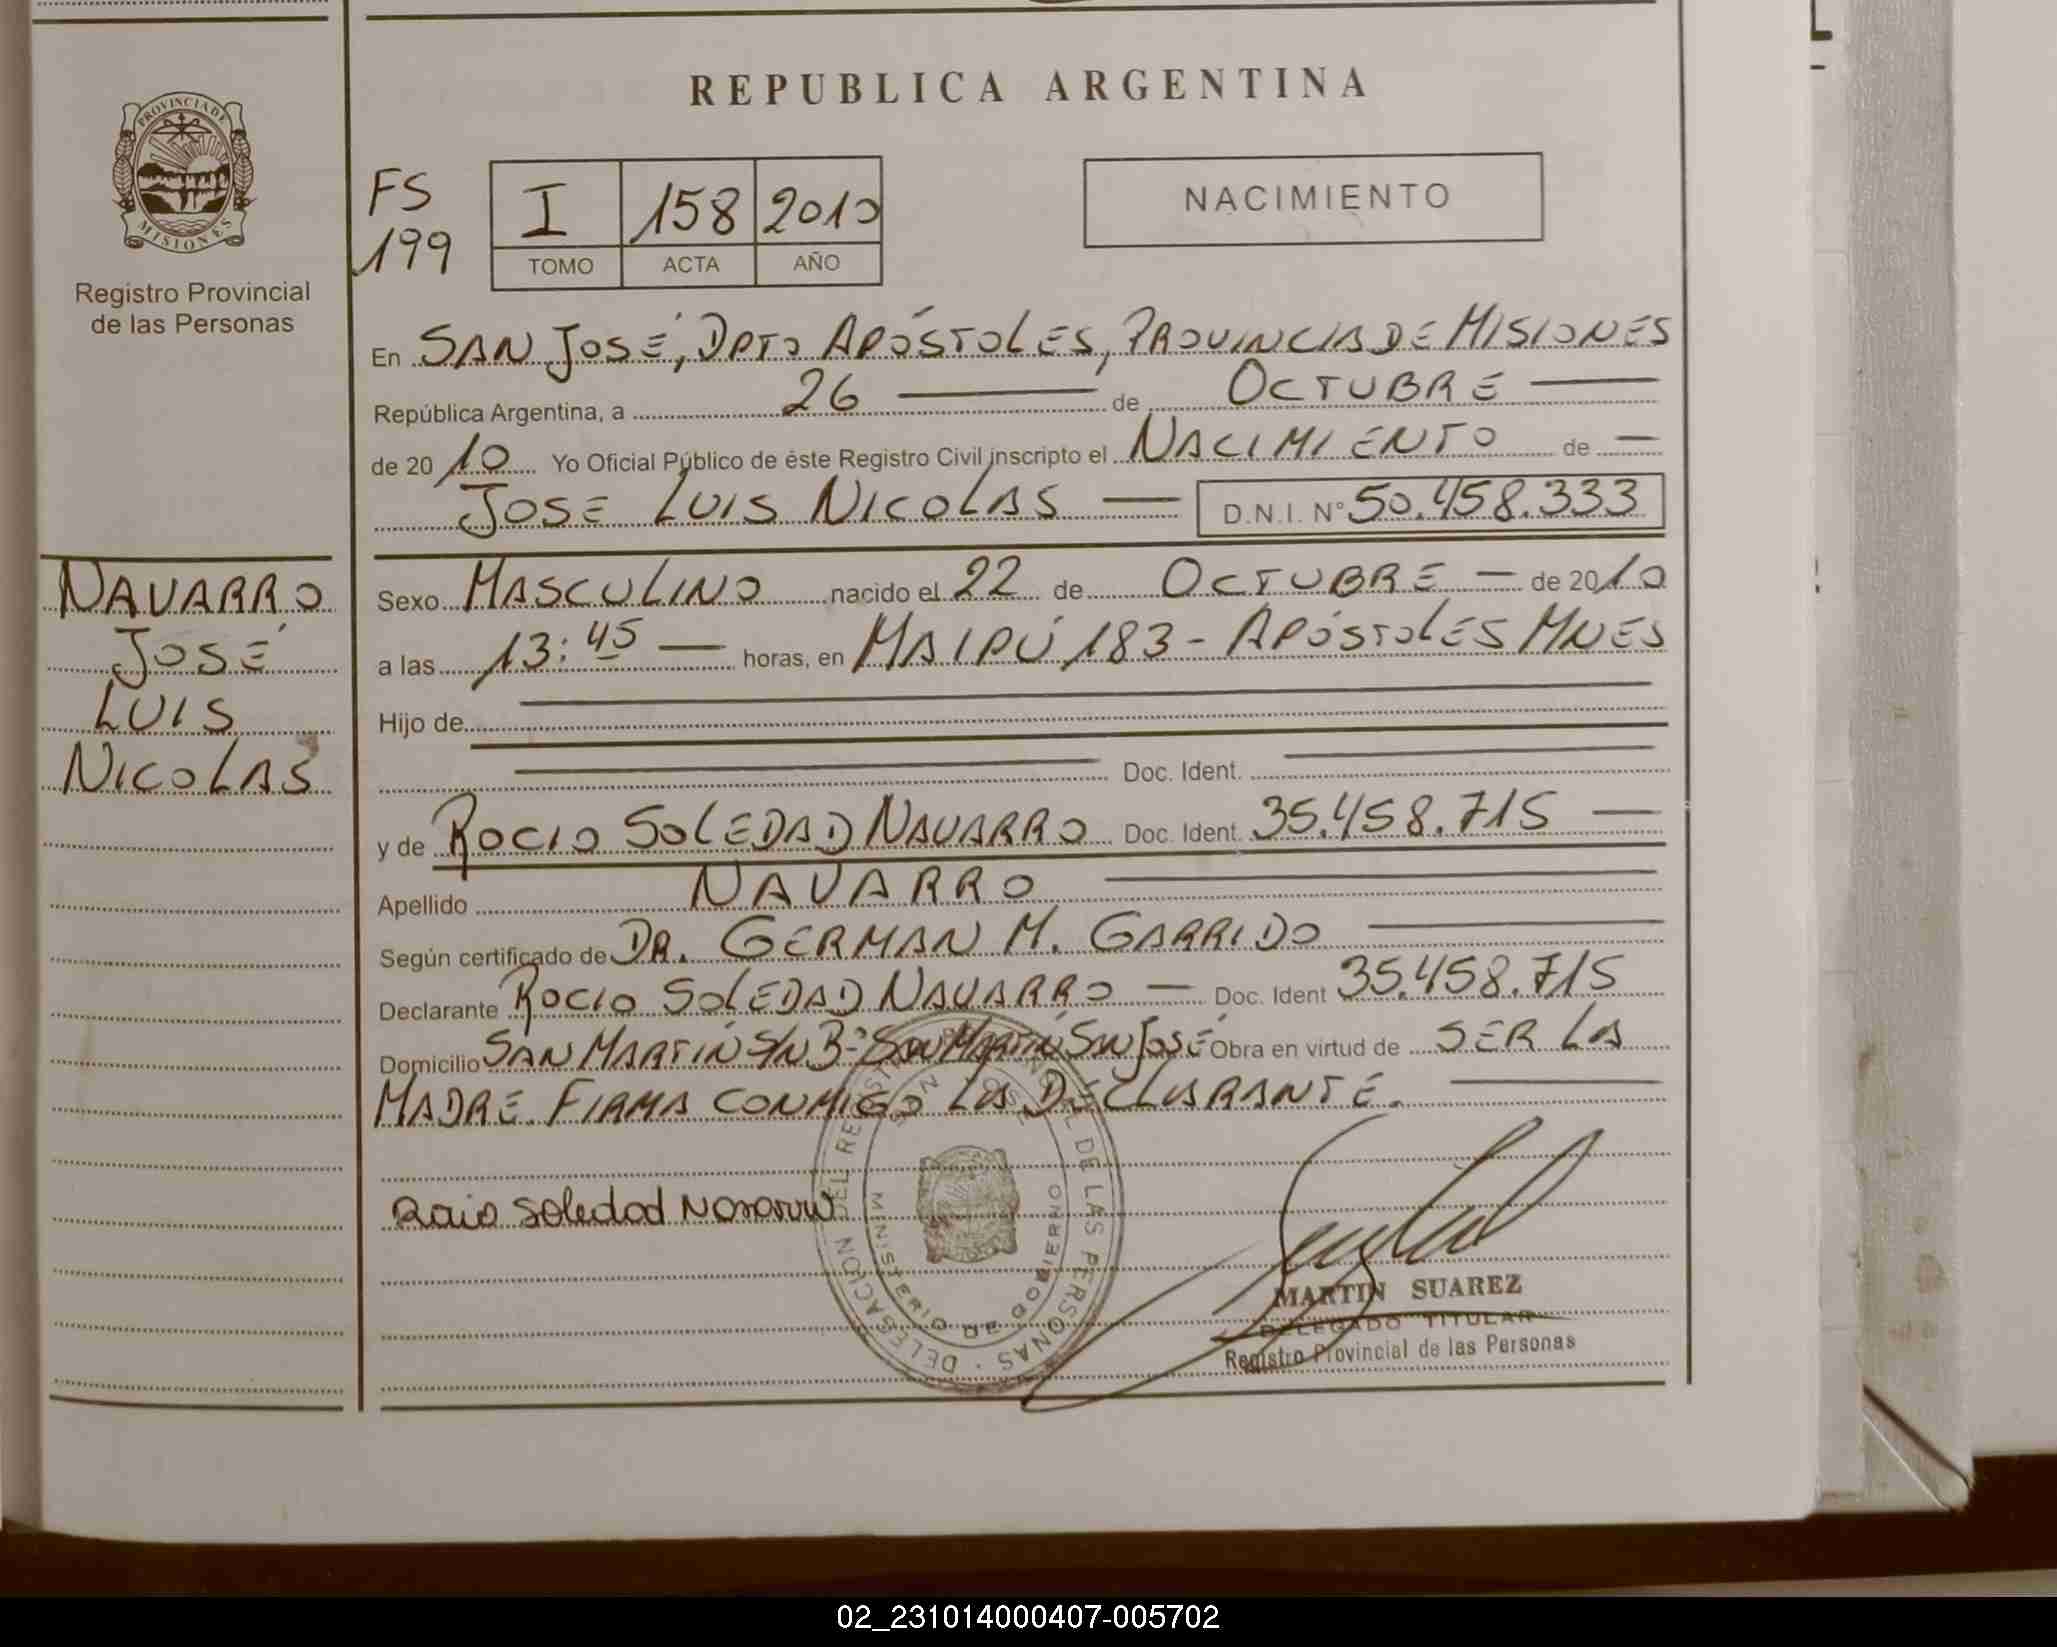 REPUBLICA ARGENTINA
PROVINCIA DE MISIONES
Registro Provincial
de las Personas
FS
199
I 158 2010
TOMO ACTA AÑO
NACIMIENTO
En SAN JOSÉ, DPTO APÓSTOLES, PROVINCIA DE MISIONES
República Argentina, a 26 de OCTUBRE
de 2010 Yo Oficial Público de éste Registro Civil inscripto el NACIMIENTO de
JOSE LUIS NICOLAS D.N.I. Nº 50.458.333
NAVARRO
JOSÉ
LUIS
NICOLAS
Sexo MASCULINO nacido el 22 de OCTUBRE de 2010
a las 13:45 horas, en MAIPÚ 183 - APÓSTOLES MNES
Hijo de
Doc. Ident.
y de ROCIO SOLEDAD NAVARRO Doc. Ident. 35.458.715
Apellido NAVARRO
Según certificado de DR. GERMAN M. GARRIDO
Declarante ROCIO SOLEDAD NAVARRO Doc. Ident 35.458.715
Domicilio SAN MARTÍN S/N Bº SAN MARTÍN SAN JOSÉ Obra en virtud de SER LA
MADRE. FIRMA CONMIGO LA DECLARANTE.
Rocio Soledad Navarro
DELEGACION DEL REGISTRO PROVINCIAL DE LAS PERSONAS
SAN JOSE
MINISTERIO DE GOBIERNO
MARTIN SUAREZ
DELEGADO TITULAR
Registro Provincial de las Personas
02_231014000407-005702